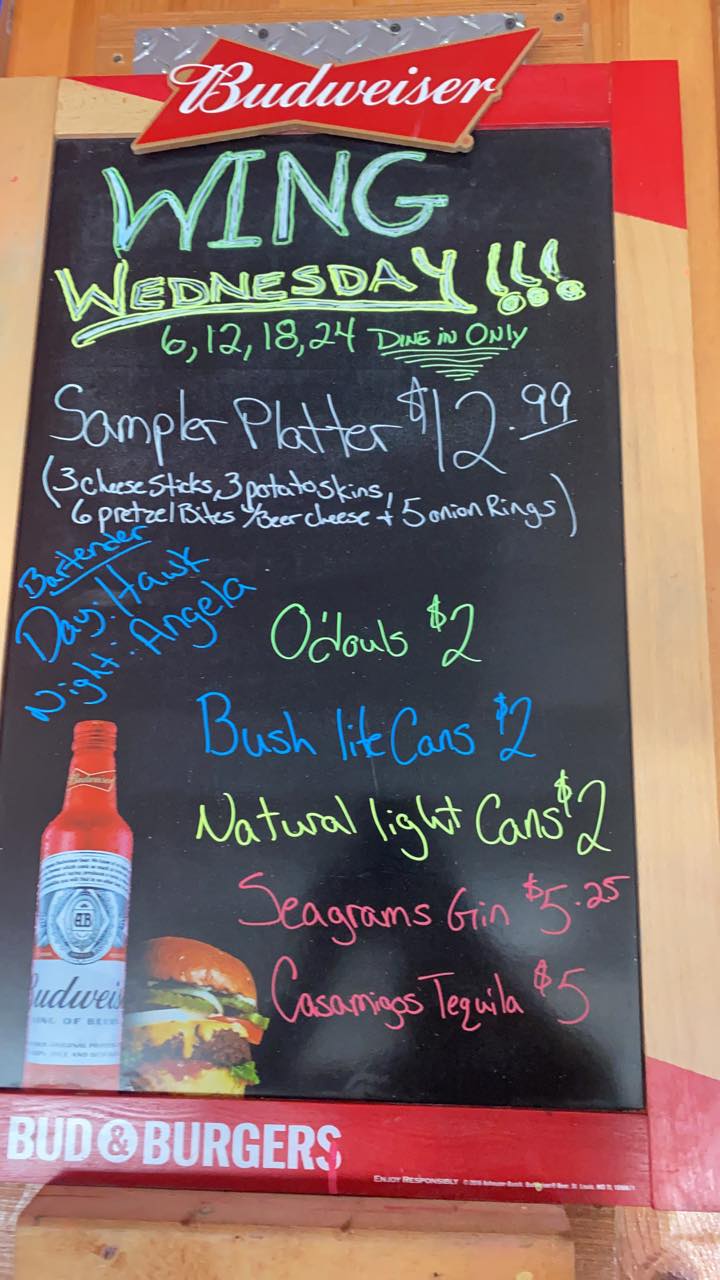 Budweiser
WING
WEDNESDAY!!!
6, 12, 18, 24 DINE IN ONLY
Sampler Platter $12.99
(3 cheese sticks, 3 potato skins,
6 pretzel Bites w/Beer cheese + 5 onion Rings)
Bartender
Day: Hawk
Night: Angela
O'douls $2
Bush lite Cans $2
Natural light Cans $2
Seagrams Gin $5.25
Casamigos Tequila $5
Budweiser
Budweis
KING OF BEER
BUD & BURGERS
ENJOY RESPONSIBLY